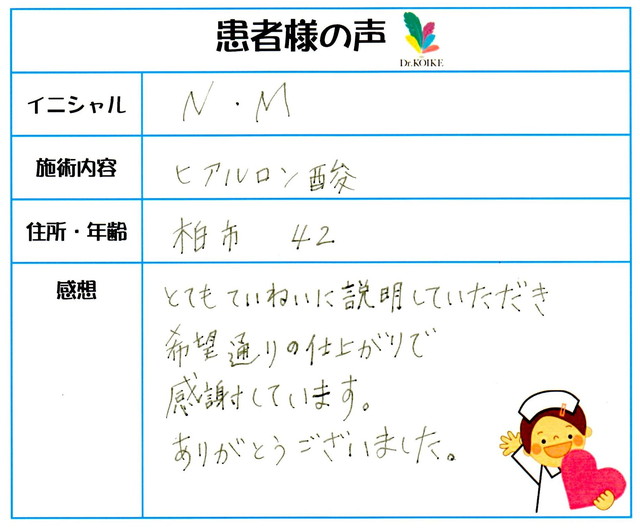 患者様の声
Dr.KOIKE
イニシャル N・M
施術内容 ヒアルロン酸
住所・年齢 柏市 42
感想 とてもていねいに説明していただき
希望通りの仕上がりで
感謝しています。
ありがとうございました。